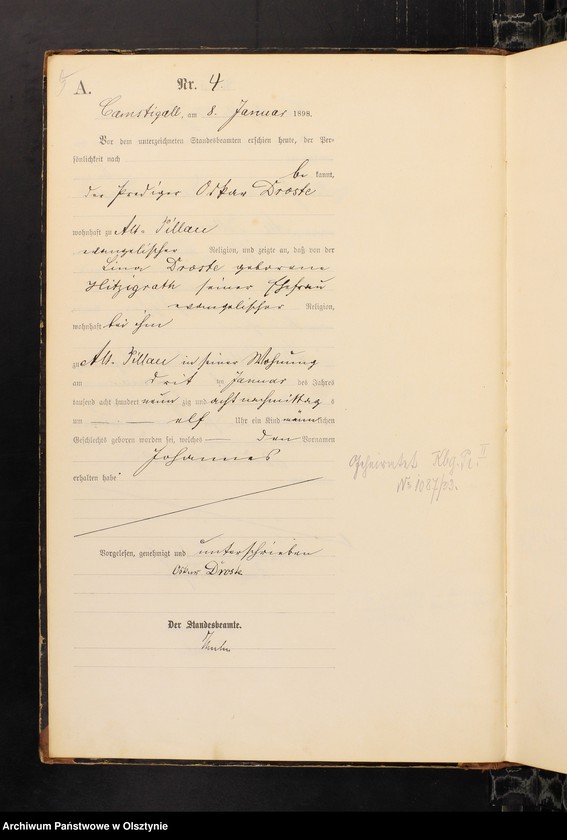 A.
Nr. 4.
Camstigall, am 8. Januar 1898.
Vor dem unterzeichneten Standesbeamten erschien heute, der Per-
sönlichkeit nach
be kannt,
der Prediger Oskar Droste
wohnhaft zu Alt-Pillau
evangelischer Religion, und zeigte an, daß von der
Lina Droste geborene
Hitzigrath seiner Ehefrau
evangelischer Religion,
wohnhaft bei ihm
zu Alt-Pillau in seiner Wohnung
am drei ten Januar des Jahres
tausend acht hundert neun zig und acht nachmittag s
um elf Uhr ein Kind männlichen
Geschlechts geboren worden sei, welches den Vornamen
Johannes
erhalten habe
Vorgelesen, genehmigt und unterschrieben
Oskar Droste
Der Standesbeamte.
Geheiratet Kbg. Pr. II
No 1087/33.
Archiwum Państwowe w Olsztynie